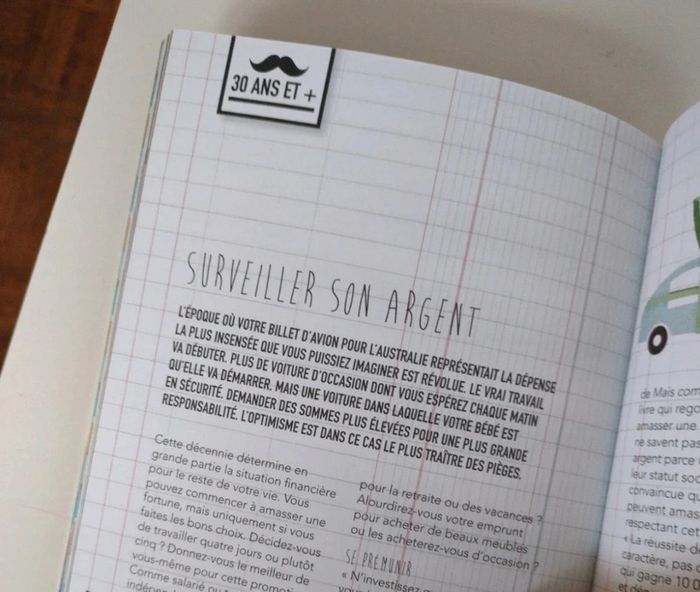 30 ANS ET +
SURVEILLER SON ARGENT
L'ÉPOQUE OÙ VOTRE BILLET D'AVION POUR L'AUSTRALIE REPRÉSENTAIT LA DÉPENSE
LA PLUS INSENSÉE QUE VOUS PUISSIEZ IMAGINER EST RÉVOLUE. LE VRAI TRAVAIL
VA DÉBUTER. PLUS DE VOITURE D'OCCASION DONT VOUS ESPÉREZ CHAQUE MATIN
QU'ELLE VA DÉMARRER, MAIS UNE VOITURE DANS LAQUELLE VOTRE BÉBÉ EST
EN SÉCURITÉ. DEMANDER DES SOMMES PLUS ÉLEVÉES POUR UNE PLUS GRANDE
RESPONSABILITÉ. L'OPTIMISME EST DANS CE CAS LE PLUS TRAÎTRE DES PIÈGES.
Cette décennie détermine en
grande partie la situation financière
pour le reste de votre vie. Vous
pouvez commencer à amasser une
fortune, mais uniquement si vous
faites les bons choix. Décidez-vous
de travailler quatre jours ou plutôt
cinq ? Donnez-vous le meilleur de
vous-même pour cette
Comme salarié ou
pour la retraite ou des vacances ?
Alourdirez-vous votre emprunt
pour acheter de beaux meubles
ou les achèterez-vous d'occasion ?
SE PRÉMUNIR
« N'investissez
de Mais
livre qui
amasser une
ne savent pas
argent parce
leur statut
convaincue
peuvent
respectant
« La réussite de
caractère, pas
qui gagne 10